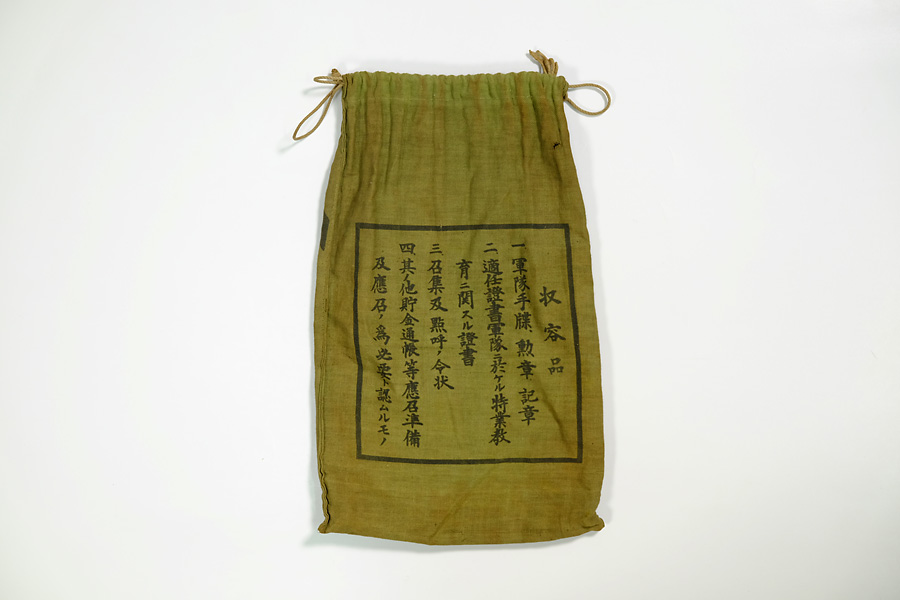 収容品
一、軍隊手牒、勲章、記章
二、適任證書軍隊ニ於ケル特業教
育ニ関スル證書
三、召集及點呼ノ令状
四、其ノ他貯金通帳等應召準備
及應召ノ為必要ト認ムルモノ